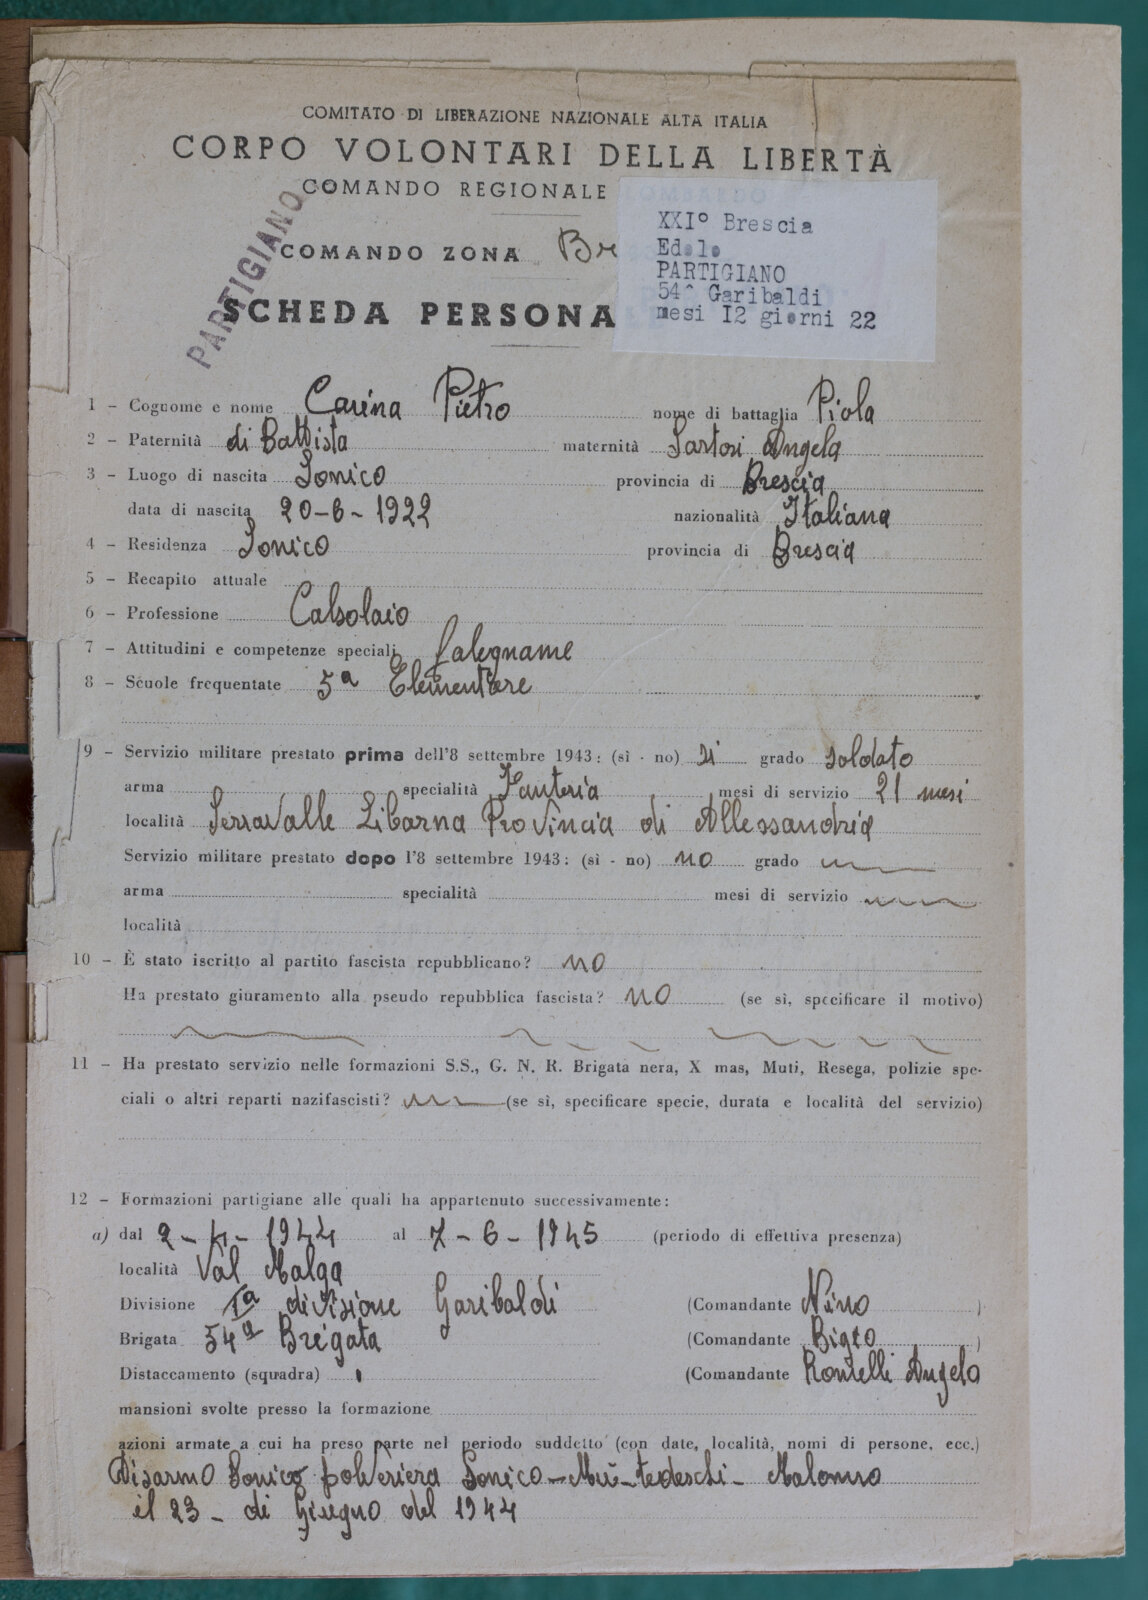 COMITATO DI LIBERAZIONE NAZIONALE ALTA ITALIA
CORPO VOLONTARI DELLA LIBERTÀ
COMANDO REGIONALE LOMBARDO
PARTIGIANO
COMANDO ZONA Br
SCHEDA PERSONA
XXI° Brescia
Edolo
PARTIGIANO
54^ Garibaldi
mesi I2 giorni 22
1 - Cognome e nome Carina Pietro nome di battaglia Piola
2 - Paternità di Battista maternità Sartori Angela
3 - Luogo di nascita Sonico provincia di Brescia
data di nascita 20-6-1922 nazionalità Italiana
4 - Residenza Sonico provincia di Brescia
5 - Recapito attuale
6 - Professione Calsolaio
7 - Attitudini e competenze speciali falegname
8 - Scuole frequentate 5a Elementare
9 - Servizio militare prestato prima dell'8 settembre 1943: (sì - no) si grado soldato
arma specialità Fanteria mesi di servizio 21 mesi
località Serravalle Libarna Provincia di Allessandria
Servizio militare prestato dopo l'8 settembre 1943: (sì - no) no grado
arma specialità mesi di servizio
località
10 - È stato iscritto al partito fascista repubblicano? no
Ha prestato giuramento alla pseudo repubblica fascista? no (se sì, specificare il motivo)
11 - Ha prestato servizio nelle formazioni S.S., G. N. R. Brigata nera, X mas, Muti, Resega, polizie spe-
ciali o altri reparti nazifascisti? (se sì, specificare specie, durata e località del servizio)
12 - Formazioni partigiane alle quali ha appartenuto successivamente:
a) dal 2-4-1944 al 7-6-1945 (periodo di effettiva presenza)
località Val Malga
Divisione Ia divisione Garibaldi (Comandante Nino )
Brigata 54a Bregata (Comandante Bigio )
Distaccamento (squadra) (Comandante Romelli Angelo
mansioni svolte presso la formazione
azioni armate a cui ha preso parte nel periodo suddetto (con date, località, nomi di persone, ecc.)
Disarmo Sonico polveriera Sonico - Mù - tedeschi - Malonno
il 23 - di Giugno del 1944